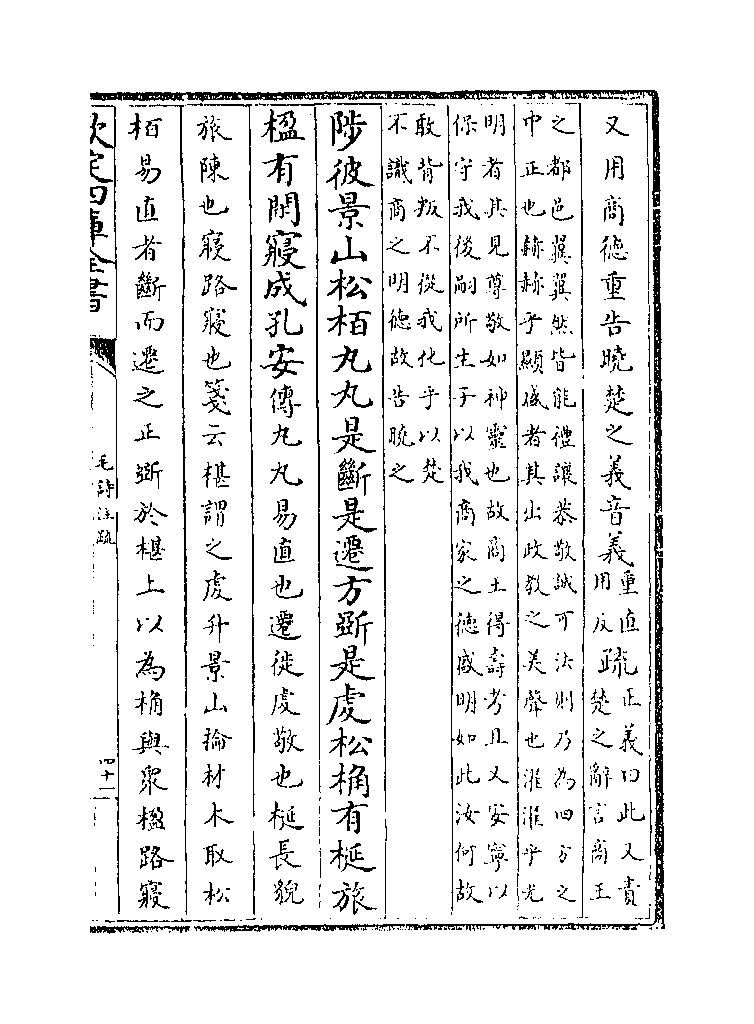 又用商德重告曉楚之義音義重直用反疏正義曰此又責楚之辭言商王
之都邑翼翼然皆能禮讓恭敬誠可法則乃為四方之
中正也赫赫乎顯盛者其出政教之美聲也濯濯乎光
明者其見尊敬如神靈也故商王得壽考且又安寧以
保守我後嗣所生子以我商家之德盛明如此汝何故
敢背叛不從我化乎以楚
不識商之明德故告曉之
陟彼景山松栢丸丸是斷是遷方斲是虔松桷有梴旅
楹有閑寢成孔安傳丸丸易直也遷徙虔敬也梴長貌
旅陳也寢路寢也箋云椹謂之虔升景山掄材木取松
栢易直者斷而遷之正斲於椹上以為桷與眾楹路寢
欽定四庫全書
毛詩注疏
四十二